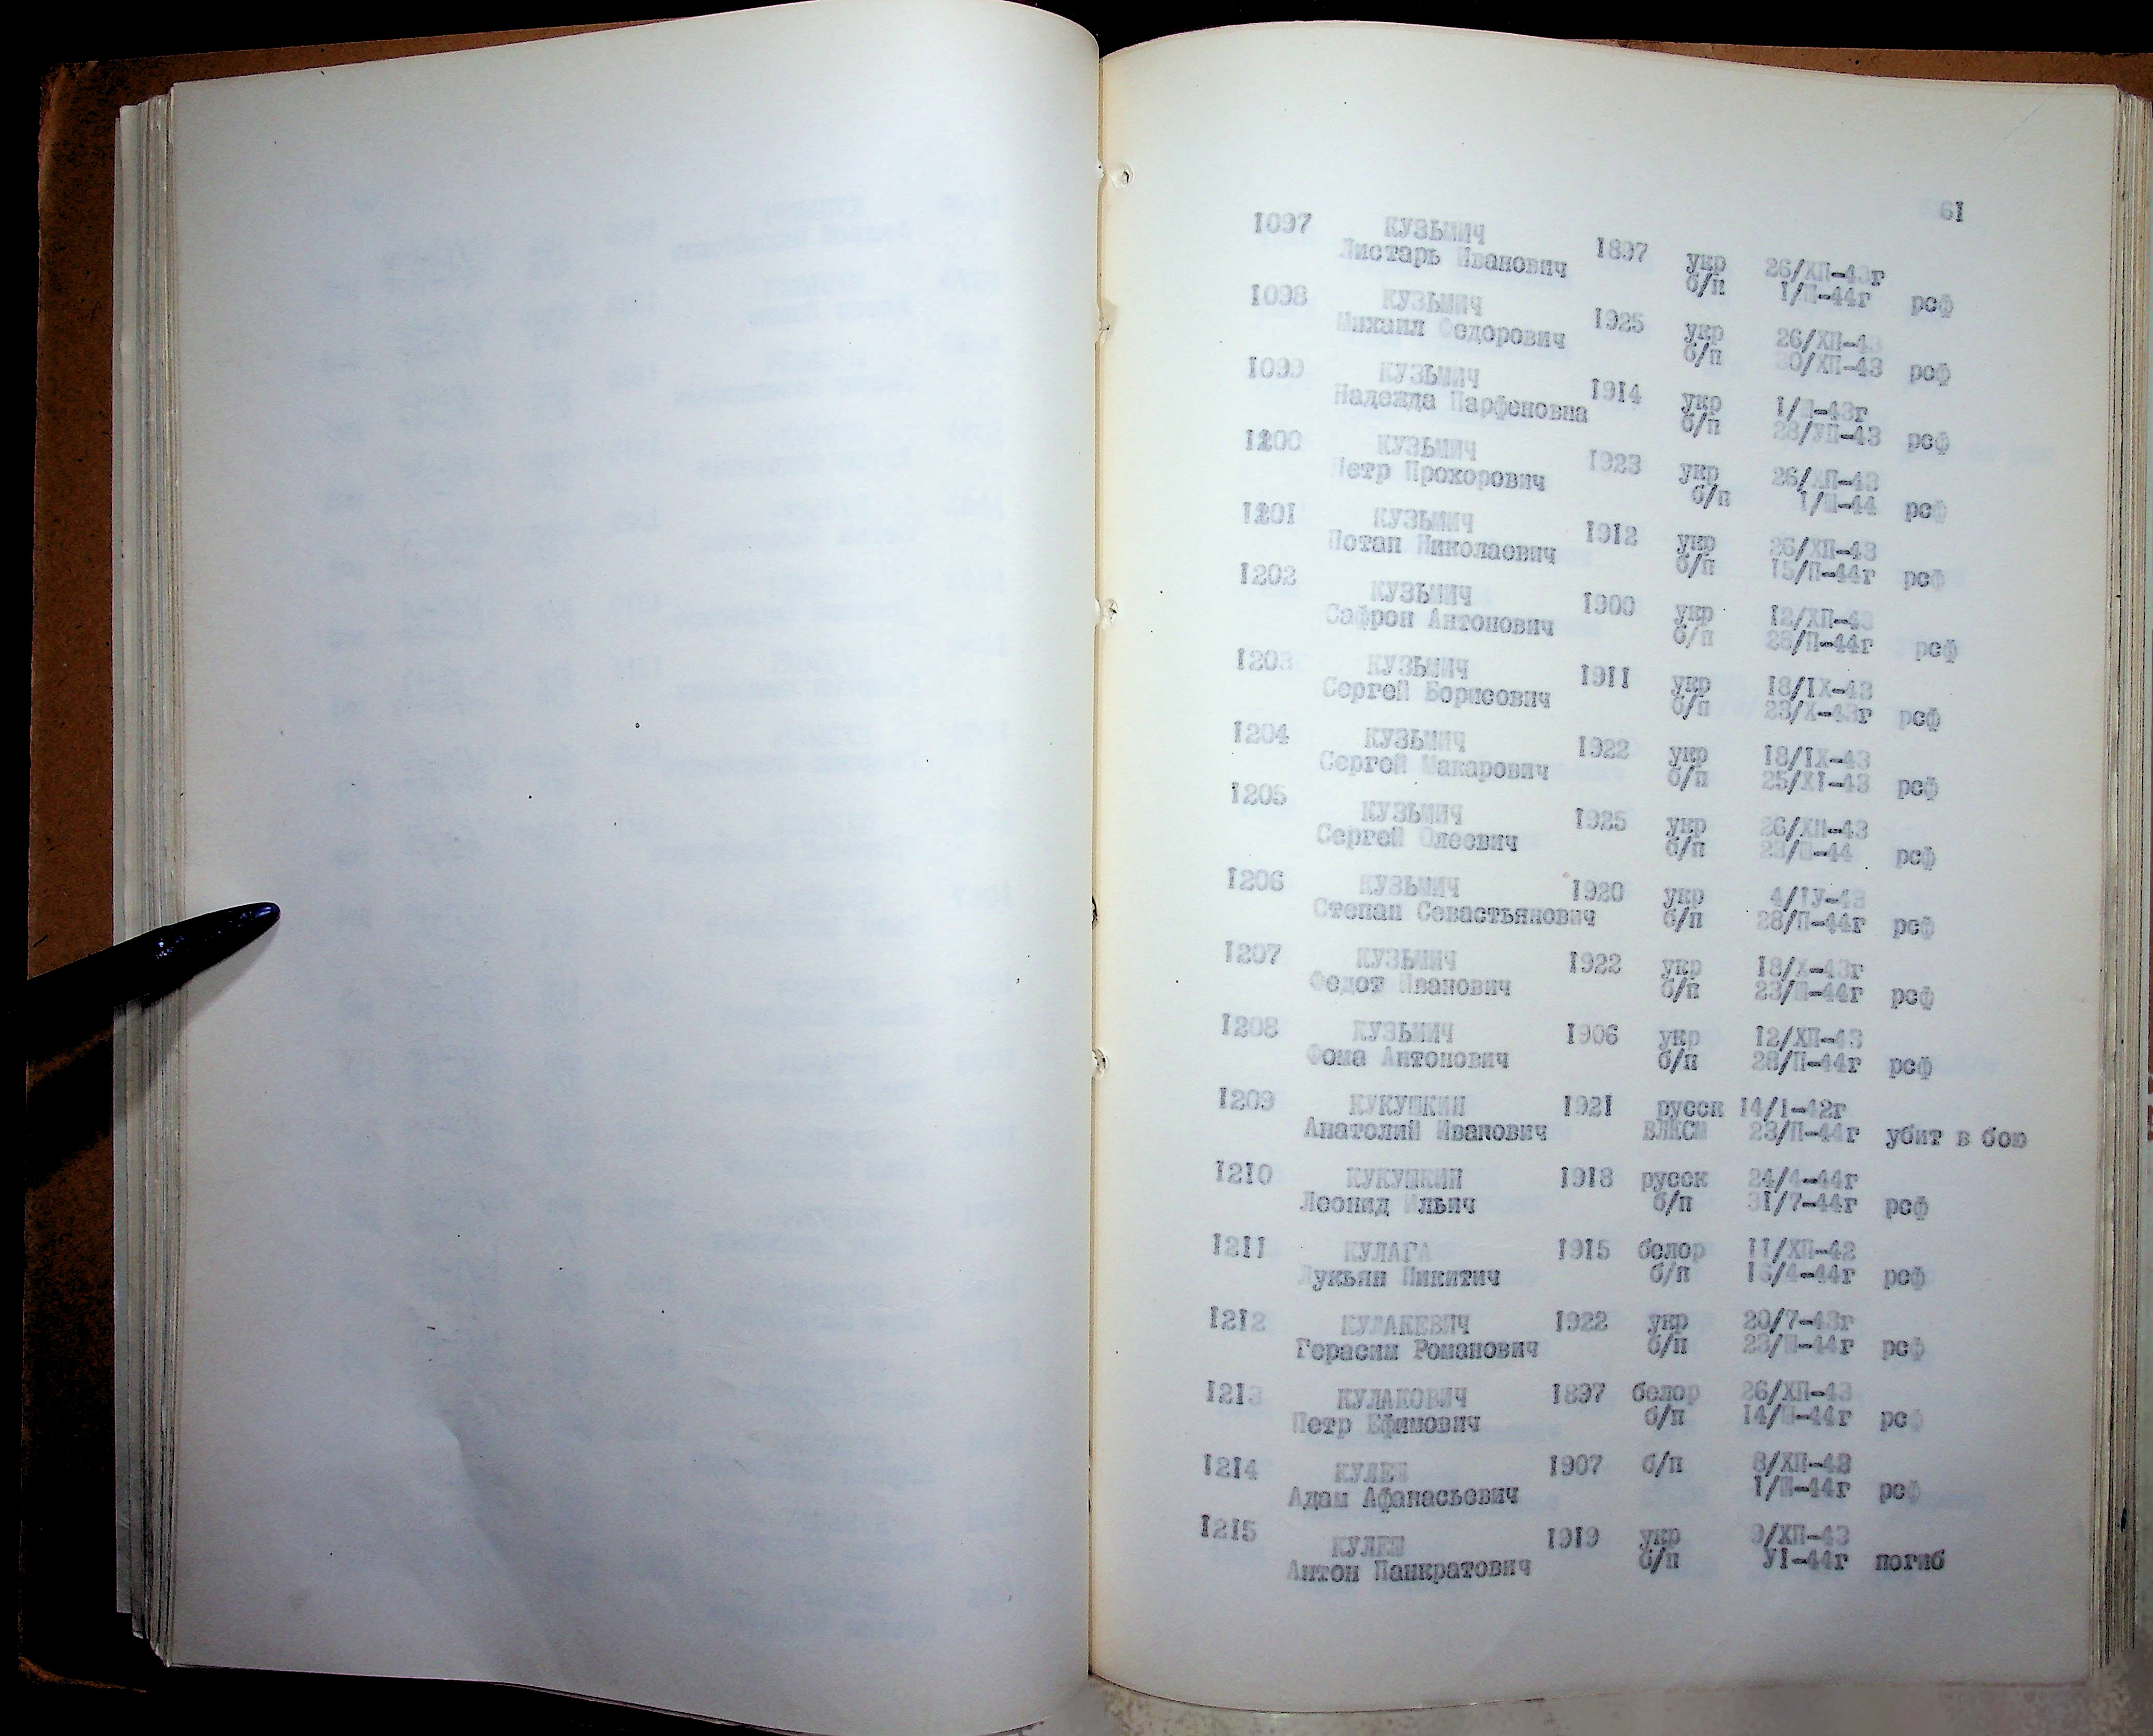 61
1097 КУЗЬМИЧ 1897 укр 26/ХП-43г
Листарь Иванович б/п 1/Ш-44г рсф
1098 КУЗЬМИЧ 1925 укр 26/ХП-43
Михаил Федорович б/п 30/ХП-43 рсф
1099 КУЗЬМИЧ 1914 укр 1/П-43г
Надежда Парфеновна б/п 28/УП-43 рсф
1200 КУЗЬМИЧ 1923 укр 26/ХП-43
Петр Прохорович б/п 1/Ш-44 рсф
1201 КУЗЬМИЧ 1912 укр 26/ХП-43
Потап Николаевич б/п 15/П-44г рсф
1202 КУЗЬМИЧ 1900 укр 12/ХП-43
Сафрон Антонович б/п 28/П-44г рсф
1203 КУЗЬМИЧ 1911 укр 18/IХ-43
Сергей Борисович б/п 23/Х-43г рсф
1204 КУЗЬМИЧ 1922 укр 18/IХ-43
Сергей Макарович б/п 25/ХI-43 рсф
1205 КУЗЬМИЧ 1925 укр 26/ХП-43
Сергей Олеевич б/п 23/Ш-44 рсф
1206 КУЗЬМИЧ 1920 укр 4/IУ-43
Степан Севастьянович б/п 28/П-44г рсф
1207 КУЗЬМИЧ 1922 укр 18/Х-43г
Федот Иванович б/п 23/Ш-44г рсф
1208 КУЗЬМИЧ 1906 укр 12/ХП-43
Фома Антонович б/п 28/П-44г рсф
1209 КУКУШКИН 1921 русск 14/1-42г
Анатолий Иванович ВЛКСМ 23/П-44г убит в бою
1210 КУКУШКИН 1918 русск 24/4-44г
Леонид Ильич б/п 31/7-44г рсф
1211 КУЛАГА 1915 белор 11/ХП-42
Лукьян Никитич б/п 15/4-44г рсф
1212 КУЛАКЕВИЧ 1922 укр 20/7-43г
Герасим Романович б/п 23/Ш-44г рсф
1213 КУЛАКОВИЧ 1897 белор 26/ХП-43
Петр Ефимович б/п 14/Ш-44г рсф
1214 КУЛЕШ 1907 б/п 8/ХП-42
Адам Афанасьевич 1/Ш-44г рсф
1215 КУЛЕШ 1919 укр 9/ХП-43
Антон Панкратович б/п УI-44г погиб